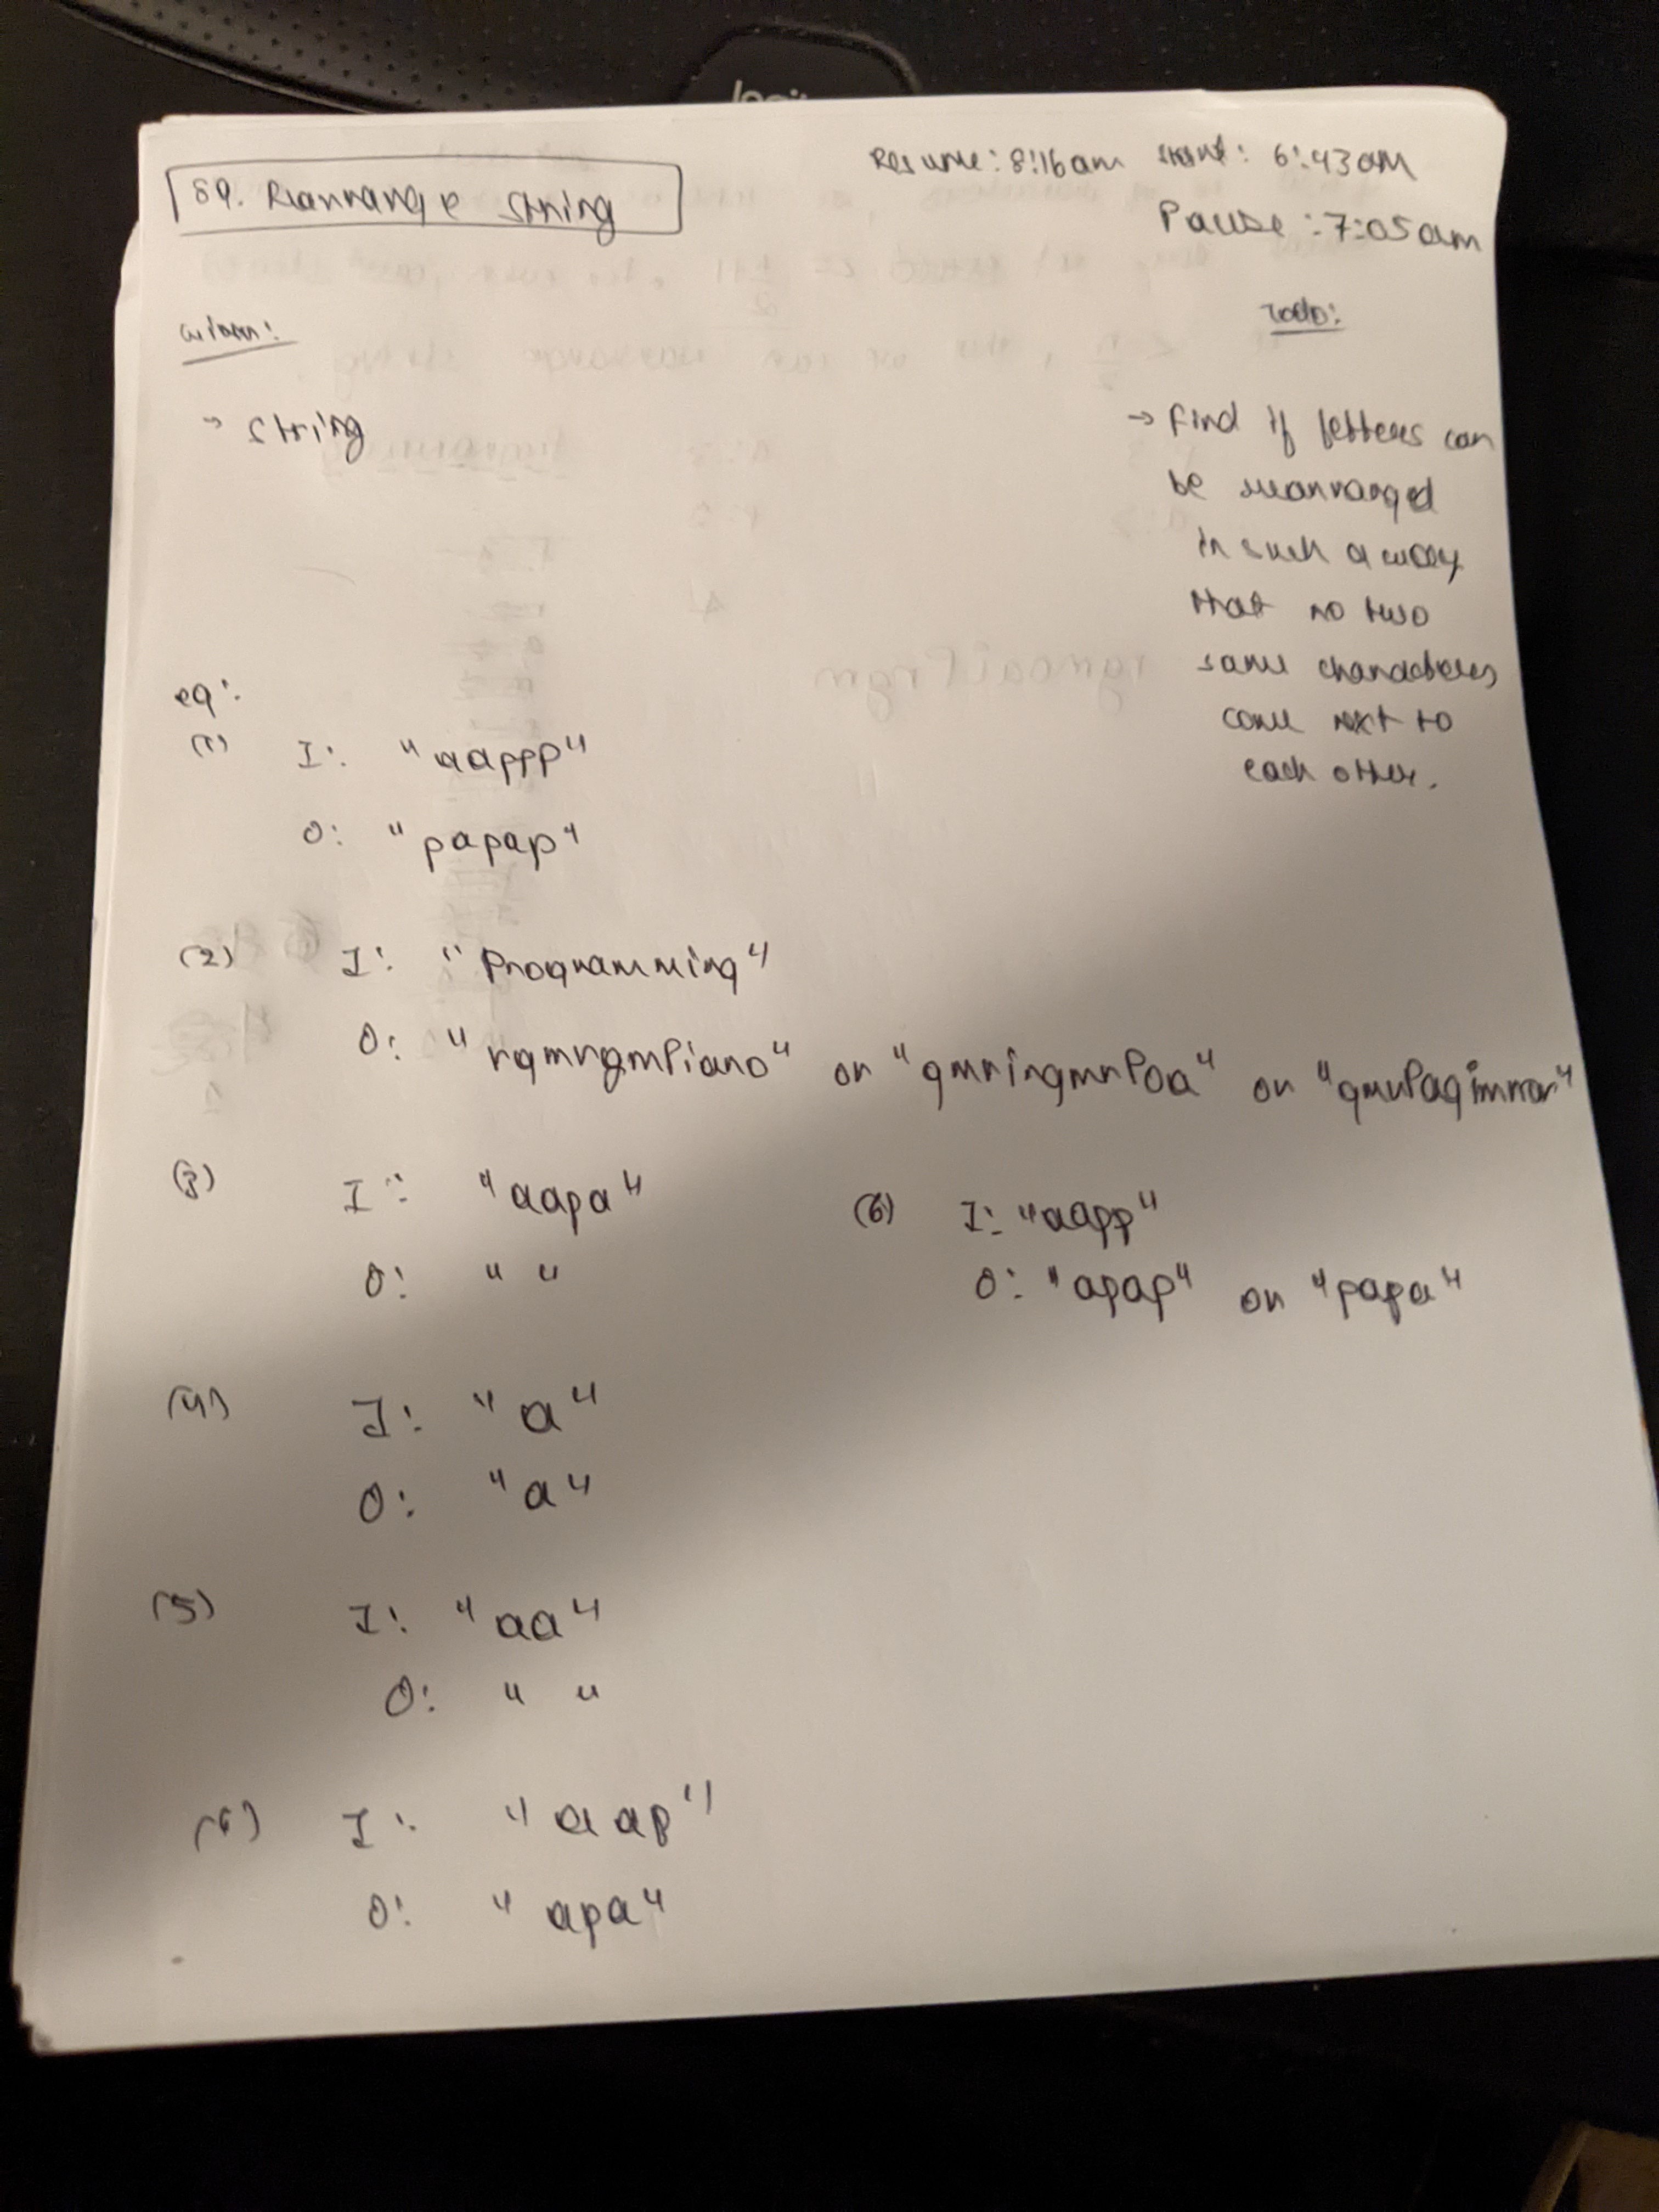 logi
Resume: 8:16am Start: 6:43am
89. Rearrange String
Pause: 7:05am
Given:
Todo:
→ String
→ Find if letters can
be rearranged
in such a way
that no two
same characters
come next to
each other.
eg:
(1) I: "aappp"
O: "papap"
(2) I: "Programming"
O: "rgmrgmPiano" or "gmringmrPoa" or "gmrPagimrno"
(3) I: "aapa"
O: " "
(6) I: "aapp"
O: "apap" or "papa"
(4) I: "a"
O: "a"
(5) I: "aa"
O: " "
(6) I: "aap"
O: "apa"